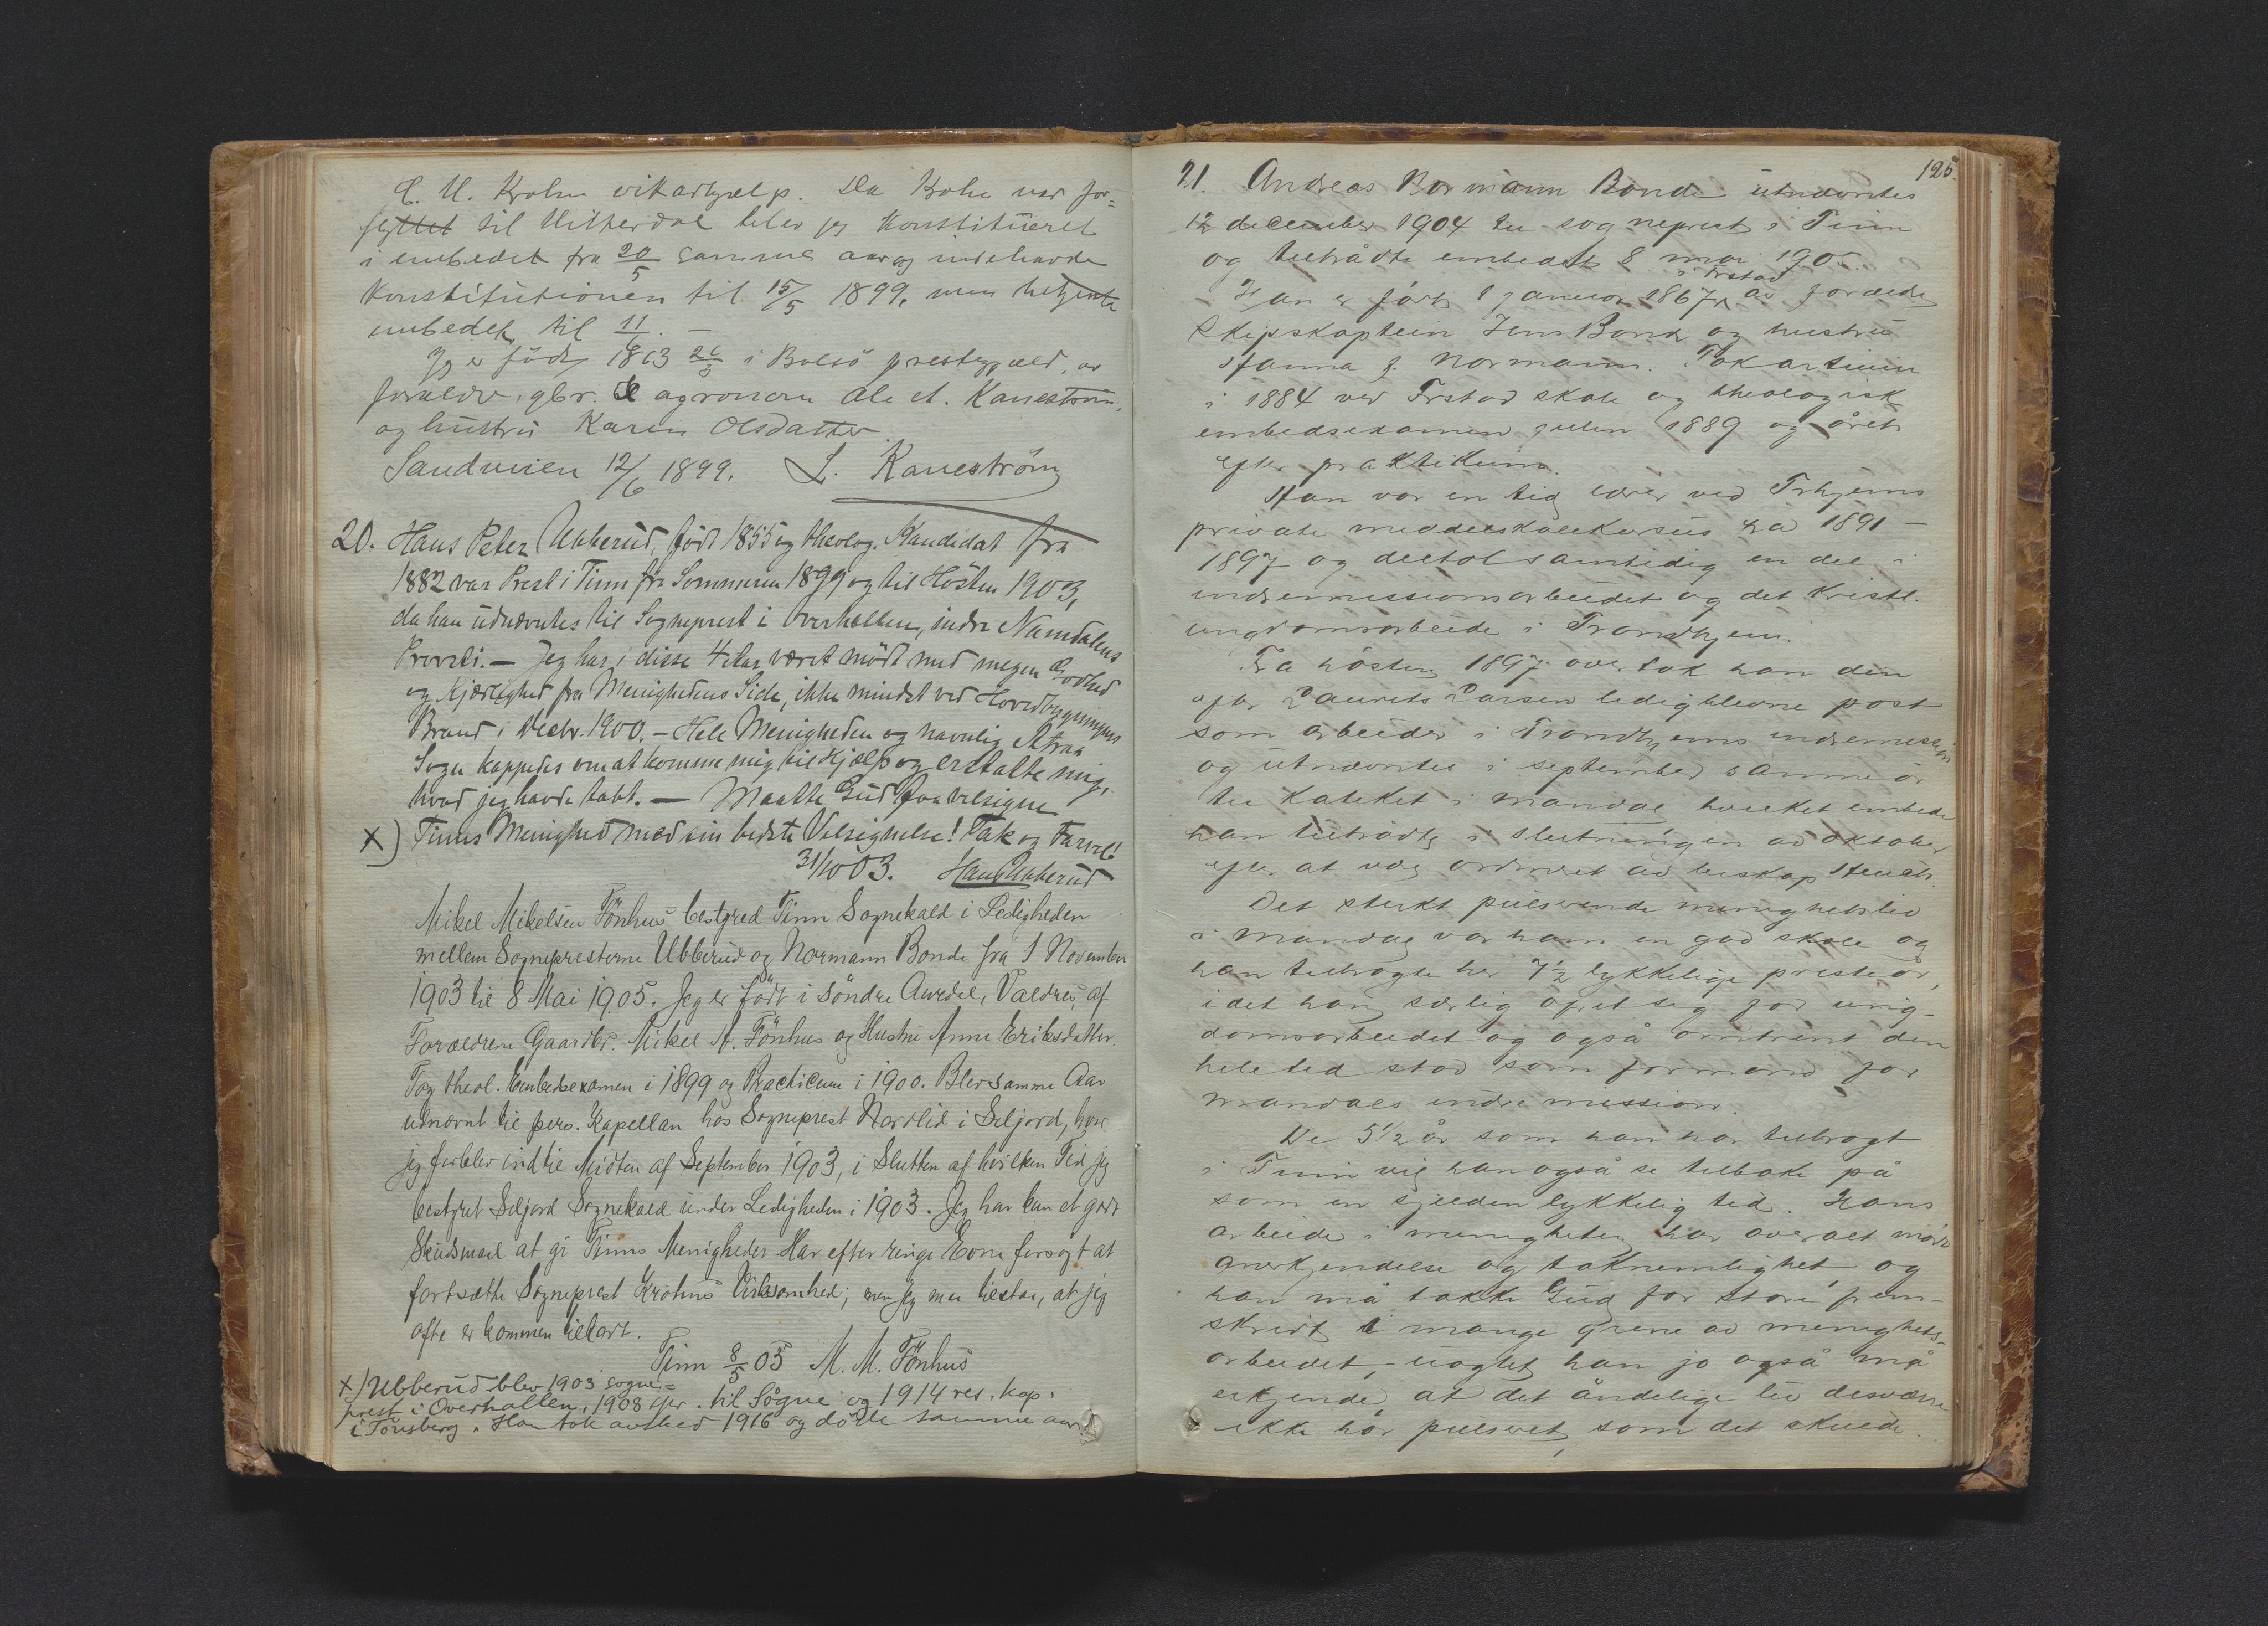 C. U. Krohn vikarhjælp. Da Krohn var for=
flyttet til Hitterdal blev jeg Konstitueret
i embedet fra 20/5 samme aar og indehavde
Konstitutionen til 15/5 1899, men betjente
embedet til 11/6. —
Jeg er född 1863 26/8 i Bolsö prestegjæld, av
forældre, gbr. & agronom Ole et. Kanestrøm,
og hustru Karen Olsdatter.
Sandviken 12/6 1899. L. Kaneström
20. Hans Peter Ubberud, født 1855 og theolog. Kandidat fra
1882 var Prest i Tinn fra Sommeren 1899 og til Hösten 1903,
da han udnævntes til Sogneprest i Overhallen, indre Namdalens
Provsti. — Jeg har i disse 4 Aar været mödt med megen Godhed
og Kjærlighed fra Menighedens Side, ikke mindst ved Hovedbygningens
Brand i Decbr. 1900. — Hele Menigheden og navnlig Atraa
Sogn kappedes om at komme mig til Hjælp og erstatte mig,
hvad jeg havde tabt. — Maatte Gud faa velsigne
X) Tinns Menighed med sin bedste Velsignelse! Tak og Farvel!
31/10 03. Hans Ubberud
Mikel Mikelsen Fönhus bestyred Tinn Sognekald i Ledigheden
mellem Sognepresterne Ubberud og Normann Bonde fra 1 November
1903 til 8 Mai 1905. Jeg er födt i Söndre Aurdal, Valdres, af
Forældrene Gaardbr. Mikel A. Fönhus og Hustru Anne Eriksdatter.
Tog theol. Embedsexamen i 1899 og Practicum i 1900. Blev samme Aar
udnævnt til pers. Kapellan hos Sogneprest Nordlid i Seljord, hvor
jeg forblev indtil Midten af September 1903, i Slutten af hvilken Tid jeg
bestyret Seljord Sognekald under Ledigheden i 1903. Jeg har kun et godt
Skudsmaal at gi Tinns Menigheder. Har efter ringe Evne forsøgt at
fortsætte Sogneprest Krohns Virksomhed; men jeg maa tilstaa, at jeg
ofte er kommen tilkort.
Tinn 8/5 05 M. M. Fönhus
X) Ubberud blev 1903 sogne=
prest i Overhallen, 1908 til Sögne og 1914 res. kap.
i Tönsberg. Han tok avsked 1916 og döde samme aar.
125.
21. Andreas Normann Bonde utnævntes
12 december 1904 til sogneprest i Tinn
og tiltrådte embedet 8 mai 1905.
i Frstad
Han er födt 1 januar 1867 av forældre
Skipskaptein Jens Bonde og hustru
Hanna f. Normann. Tok artium
i 1884 ved Frstad skole og theologisk
embedsexamen julen 1889 og året
efter praktikum.
Han var en tid lærer ved Trhjems
private middelskolekursus fra 1891 –
1897 og deltok samtidig en del i
indremissionsarbeidet og det Kristl.
ungdomsarbeide i Trondhjem.
Fra hösten 1897 overtok han den
efter Laurits Larsen ledigblevne post
som arbeider i Trondhjems indremission
og utnævntes i september samme år
til Kateket i Mandal hvilket embede
han tiltrådte i slutningen av oktober
efter at være ordineret av biskop Heuch.
Det sterkt pulserende menighetsliv
i Mandal var ham en god skole og
han tilbragte her 7½ lykkelige presteår,
idet han særlig ofret seg for ung-
domsarbeidet og også omtrent den
hele tid stod som formand for
Mandals indre mission.
De 5½ år som han har tilbragt
i Tinn vil han også se tilbake på
som en sjelden lykkelig tid. Hans
arbeide i menigheten har overalt mödt
anerkjendelse og taknemlighet og
han må takke Gud for store frem-
skridt i mange grene av menighets-
arbeidet, – uagtet han jo også må
erkjende, at det åndelige liv desværre
ikke har pulseret, som det skulde.